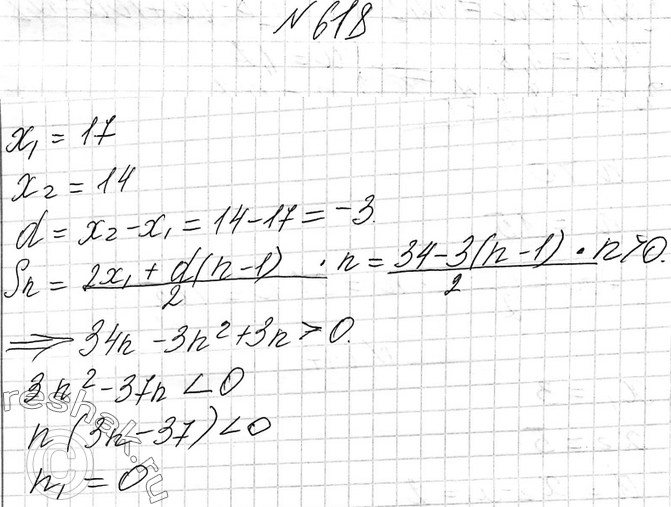 №618
x₁ = 17
x₂ = 14
d = x₂ - x₁ = 14 - 17 = -3.
Sn = (2x₁ + d(n-1))/2 · n = (34 - 3(n-1))/2 · n > 0.
⇒ 34n - 3n² + 3n > 0.
3n² - 37n < 0
n(3n - 37) < 0
n₁ = 0
reshak.ru